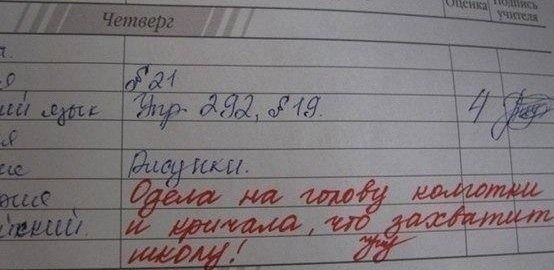 Четверг
Оценка
Подпись
учителя
я
§ 21
ий язык Упр. 292, § 19. 4
я
ие Рисунки.
Одела на голову колготки
йский. и кричала, что захватит
школу!